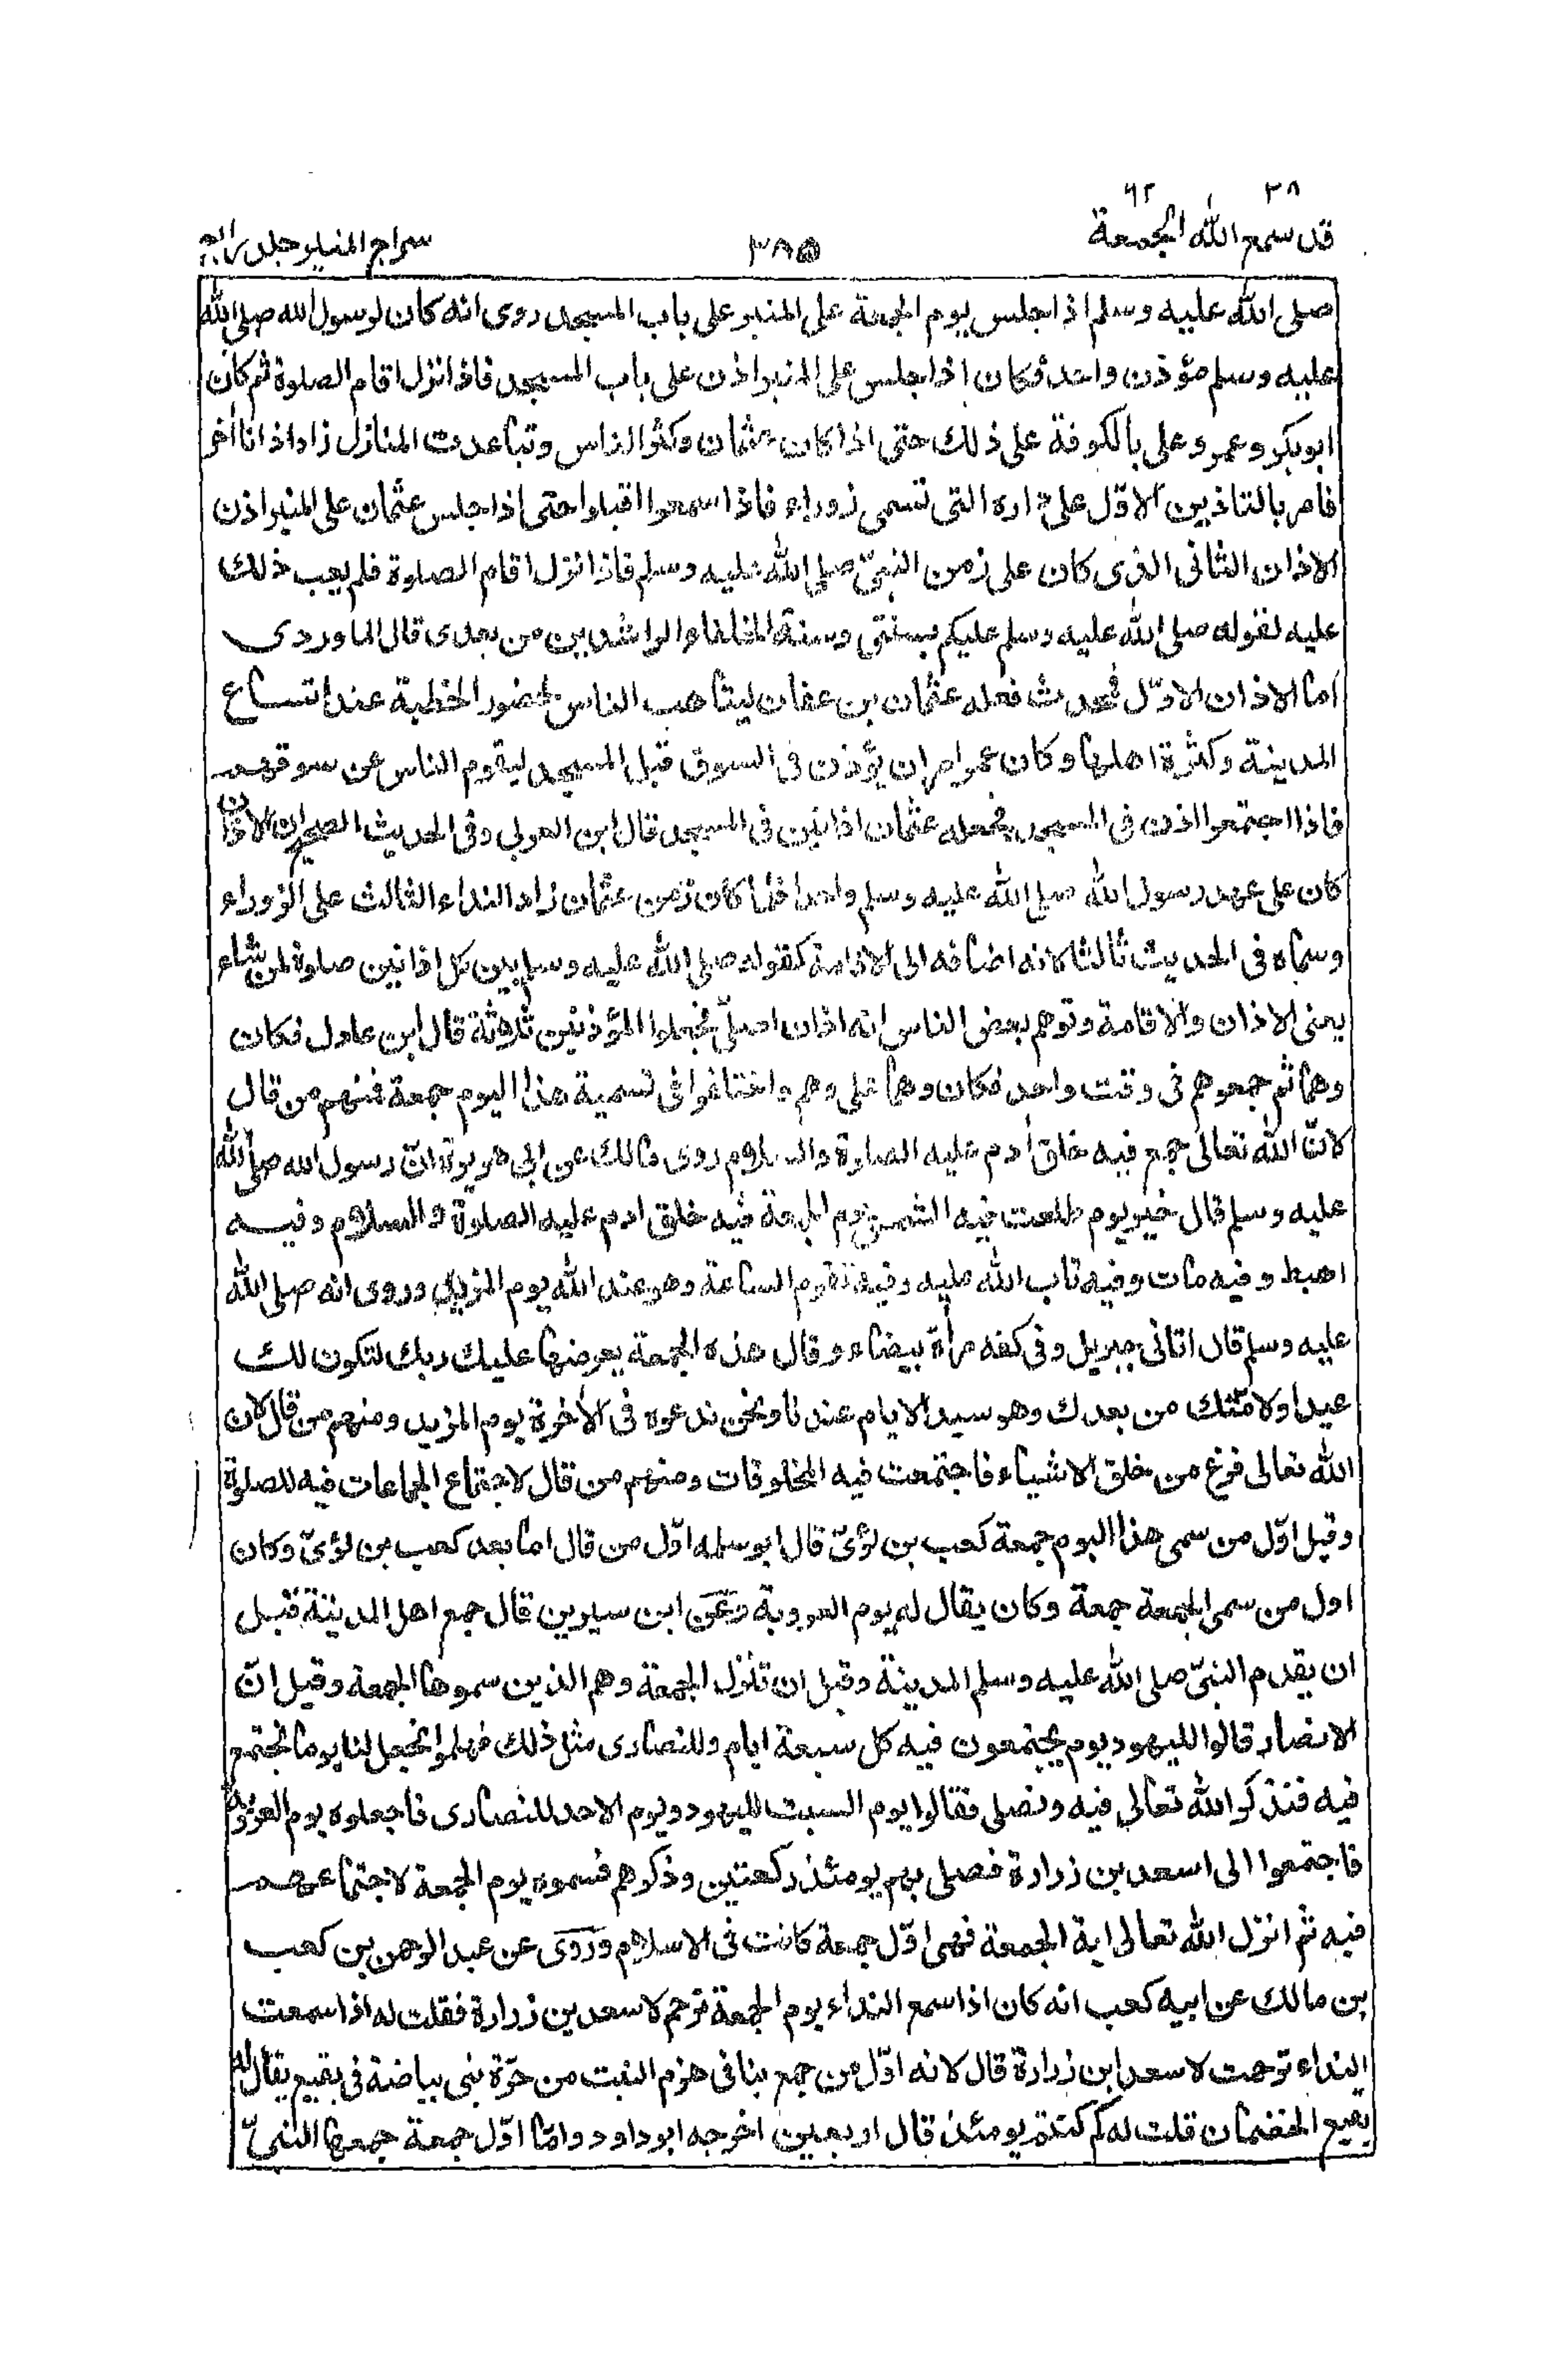 ٢٨ ٦٢
قد سمع الله الجمعة ٣٨٥ سراج المنير جلد
صلى الله عليه وسلم اذا جلس يوم الجمعة على المنبر على باب المسجد روى انه كان لرسول الله صلى الله
عليه وسلم مؤذن واحد فكان اذا جلس على المنبر اذن على باب المسجد فاذا نزل اقام الصلوة ثم كان
ابو بكر وعمر وعلى بالكوفة على ذلك حتى اذا كان عثمان وكثر الناس وتباعدت المنازل زاد اذانا أخر
فامر بالتاذين الاوّل على داره التى تسمى زوراء فاذا سمعوا اقبلوا حتى اذا جلس عثمان على المنبر اذن
الاذان الثانى الذى كان على زمن النبىّ صلى الله عليه وسلم فاذا نزل اقام الصلوة فلم يعب ذلك
عليه لقوله صلى الله عليه وسلم عليكم بسنتى وسنة الخلفاء الراشدين من بعدى قال الماوردى
اما الاذان الاوّل فمحدث فعله عثمان بن عفان ليتاهب الناس لحضور الخطبة عند اتساع
المدينة وكثرة اهلها وكان عمر امر ان يؤذن فى السوق قبل المسجد ليقوم الناس عن سوقهم
فاذا اجتمعوا اذن فى المسجد فجعله عثمان اذانين فى المسجد قال ابن العربى وفى الحديث الصحيح ان الاذان
كان على عهد رسول الله صلى الله عليه وسلم واحدا فلما كان زمن عثمان زاد النداء الثالث على الزوراء
وسماه فى الحديث ثالثا لانه اضافه الى الاقامة كقوله صلى الله عليه وسلم بين كل اذانين صلوة لمن شاء
يعنى الاذان والاقامة وتوهم بعض الناس انه اذان اصلىّ فجعلوا المؤذنين ثلاثة قال ابن عادل فكان
وهما ثم جمعوهم فى وقت واحد فكان وهما على وهم واختلفوا فى تسمية هذا اليوم جمعة فمنهم من قال
لانّ الله تعالى جمع فيه خلق أدم عليه الصلوة والسلام روى مالك عن ابى هريرة انّ رسول الله صلى الله
عليه وسلم قال خير يوم طلعت فيه الشمس يوم الجمعة فيه خلق ادم عليه الصلوة والسلام وفيه
اهبط وفيه مات وفيه تاب الله عليه وفيه تقوم الساعة وهو عند الله يوم المزيد وروى انه صلى الله
عليه وسلم قال اتانى جبريل وفى كفه مرأة بيضاء وقال هذه الجمعة يعرضها عليك ربك لتكون لك
عيدا ولامّتك من بعدك وهو سيد الايام عندنا ونحن ندعوه فى الأخرة يوم المزيد ومنهم من قال لان
الله تعالى فرغ من خلق الاشياء فاجتمعت فيه المخلوقات ومنهم من قال لاجتماع الجماعات فيه للصلوة
وقيل اوّل من سمى هذا اليوم جمعة كعب بن لؤىّ قال ابو سلمه اوّل من قال اما بعد كعب بن لؤىّ وكان
اول من سمى الجمعة جمعة وكان يقال له يوم العروبة وعن ابن سيرين قال جمع اهل المدينة قبل
ان يقدم النبىّ صلى الله عليه وسلم المدينة وقبل ان تنزل الجمعة وهم الذين سموها الجمعة وقيل انّ
الانصار قالوا لليهود يوم يجتمعون فيه كل سبعة ايام وللنصارى مثل ذلك فهلموا نجعل لنا يوما نجتمع
فيه فنذكر الله تعالى فيه ونصلى فقالوا يوم السبت لليهود ويوم الاحد للنصارى فاجعلوه يوم العروبة
فاجتمعوا الى اسعد بن زرارة فصلى بهم يومئذ ركعتين وذكرهم فسموه يوم الجمعة لاجتماعهم
فيه ثم انزل الله تعالى اية الجمعة فهى اوّل جمعة كانت فى الاسلام وروى عن عبد الرحمن بن كعب
بن مالك عن ابيه كعب انه كان اذا سمع النداء يوم الجمعة ترحم لاسعد بن زرارة فقلت له اذا سمعت
النداء ترحمت لاسعد ابن زرارة قال لانه اوّل من جمع بنا فى هزم النبت من حرّة بنى بياضة فى بقيع يقال له
بقيع الخضمان قلت له كم كنتم يومئذ قال اربعين اخرجه ابو داود وامّا اوّل جمعة جمعها النبىّ